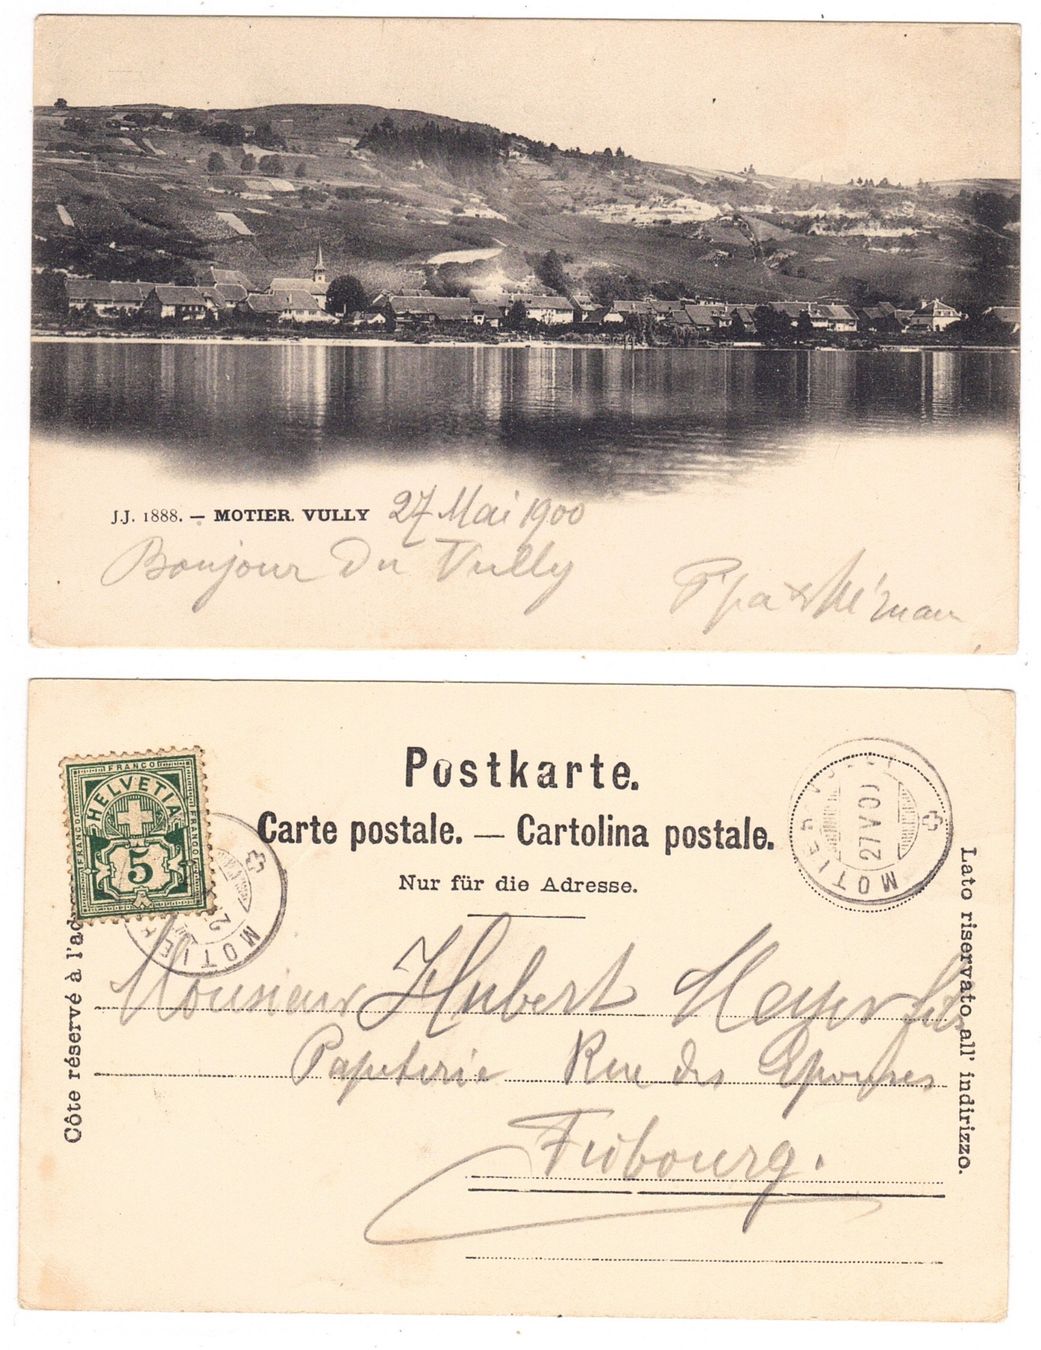 J.J. 1888. — MOTIER. VULLY 27 Mai 1900
Bonjour du Vully
Postkarte.
Carte postale. — Cartolina postale.
Nur für die Adresse.
FRANCO
HELVETIA
FRANCO
FRANCO
5
MOTIER
MOTIER
27 V 00
Côte réservé à l'ad
Lato riservato all' indirizzo.
Monsieur Hubert Meyer fils
Papeterie Rue des Epouses
Fribourg.